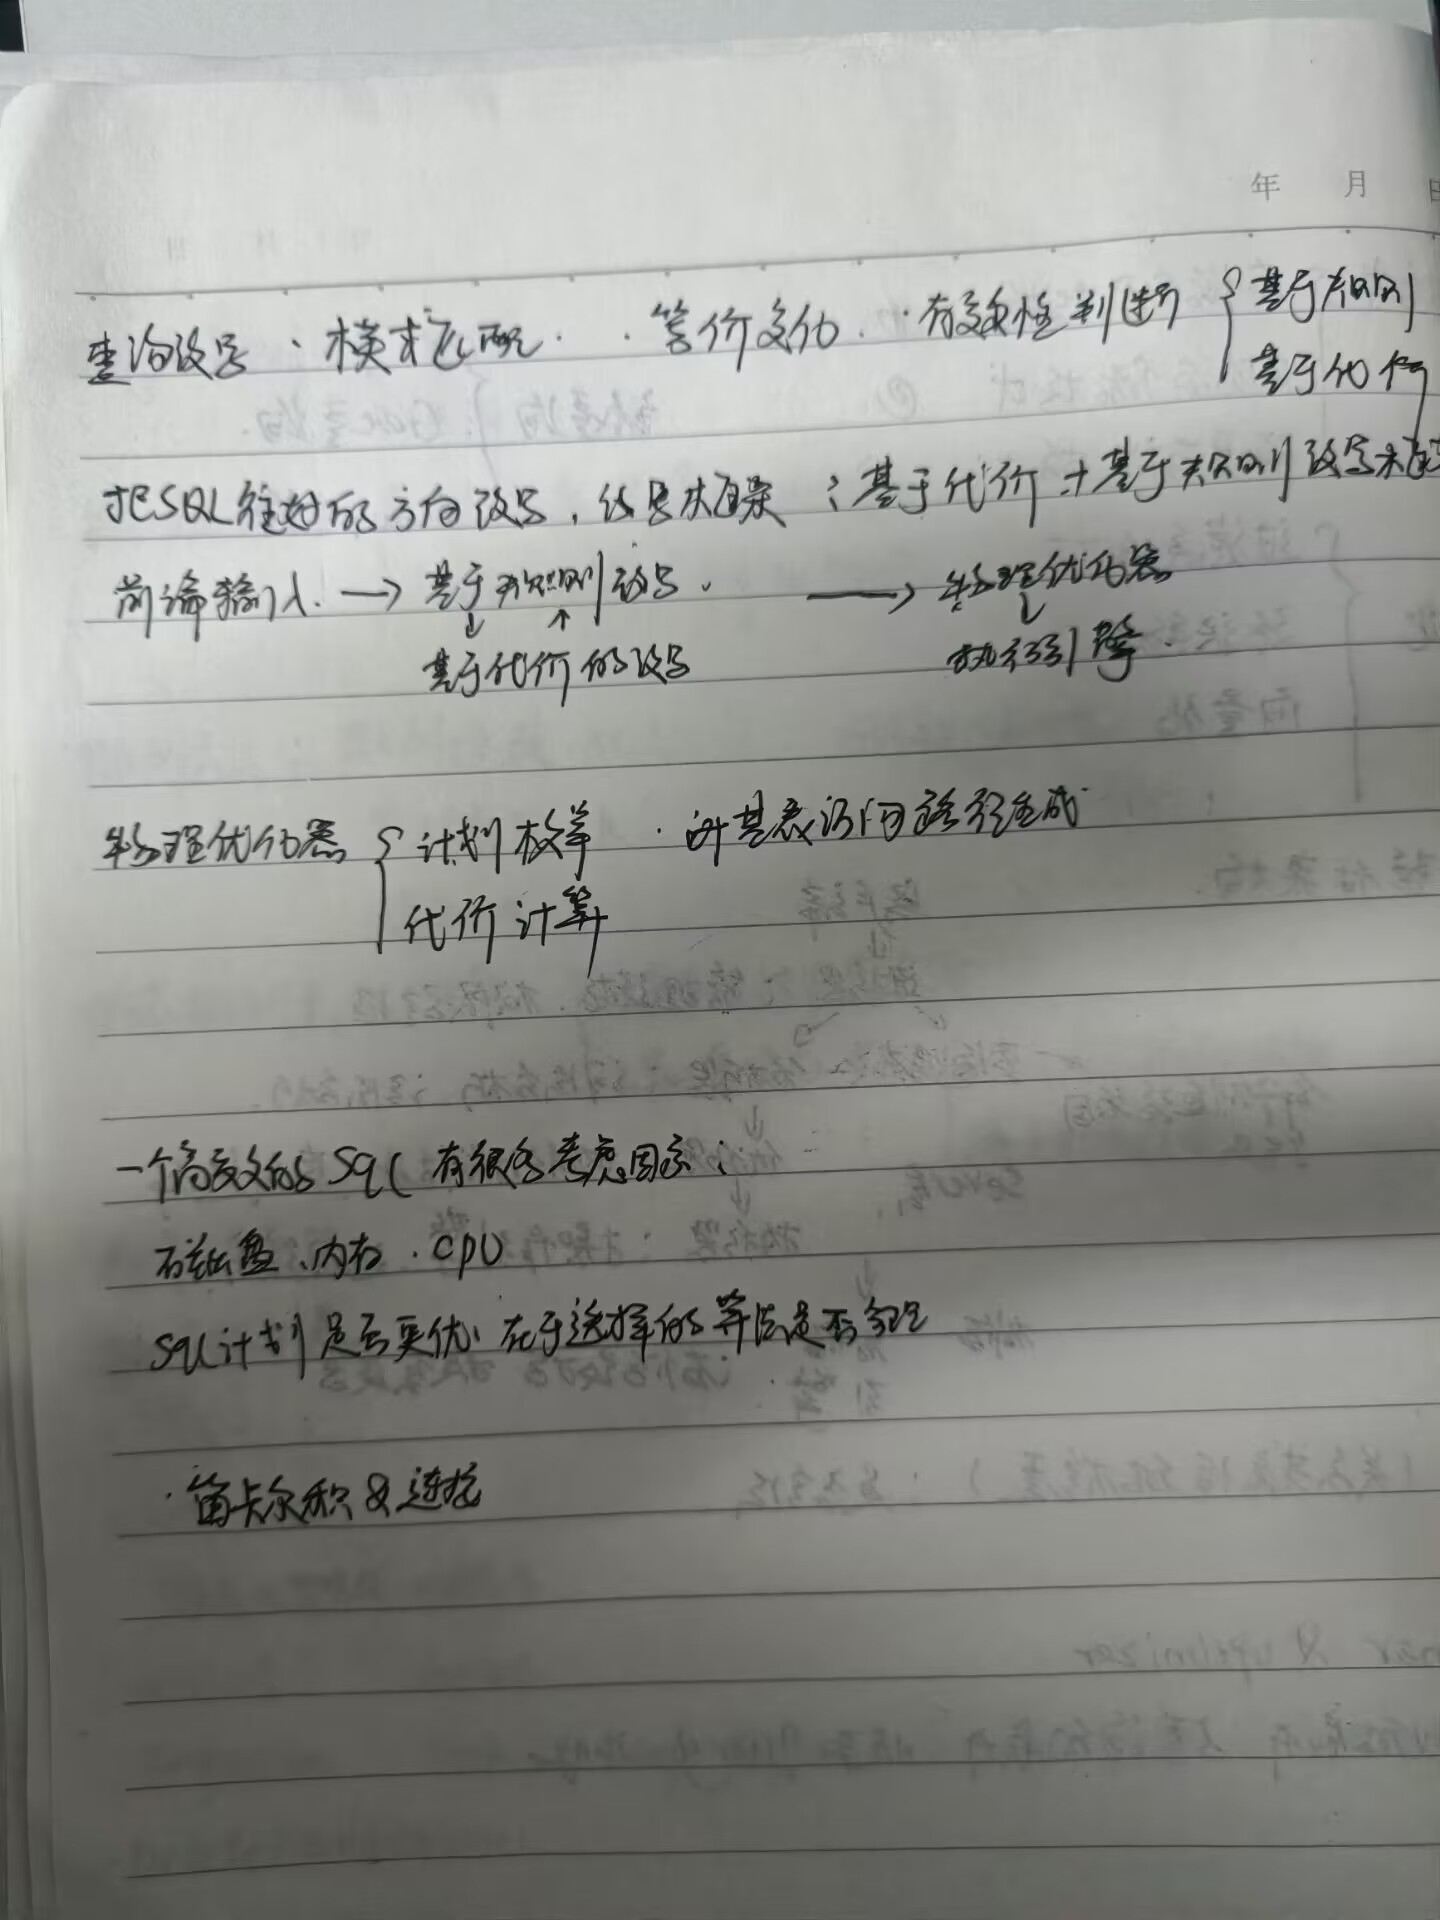 年 月 日
查询改写 · 模式匹配 · · 等价变化 · · 有效性判断 { 基于规则
基于代价
把SQL往好的方向改写，改写框架：基于代价+基于规则改写框架
前端输入 → 基于规则改写 → 物理优化器
↓ ↑ ↓
基于代价的改写 执行引擎
物理优化器 { 计划枚举 · 讲基表访问路径生成
代价计算
一个高效的sql有很多考虑因素：
磁盘、内存、CPU
sql计划是否更优，在于选择的算法是否合理
· 笛卡尔积&连接